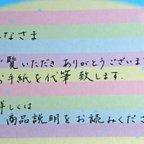 なさま
覧いただき ありがとうございま
お手紙を代筆致します。
詳しくは
商品説明をお読みくださ